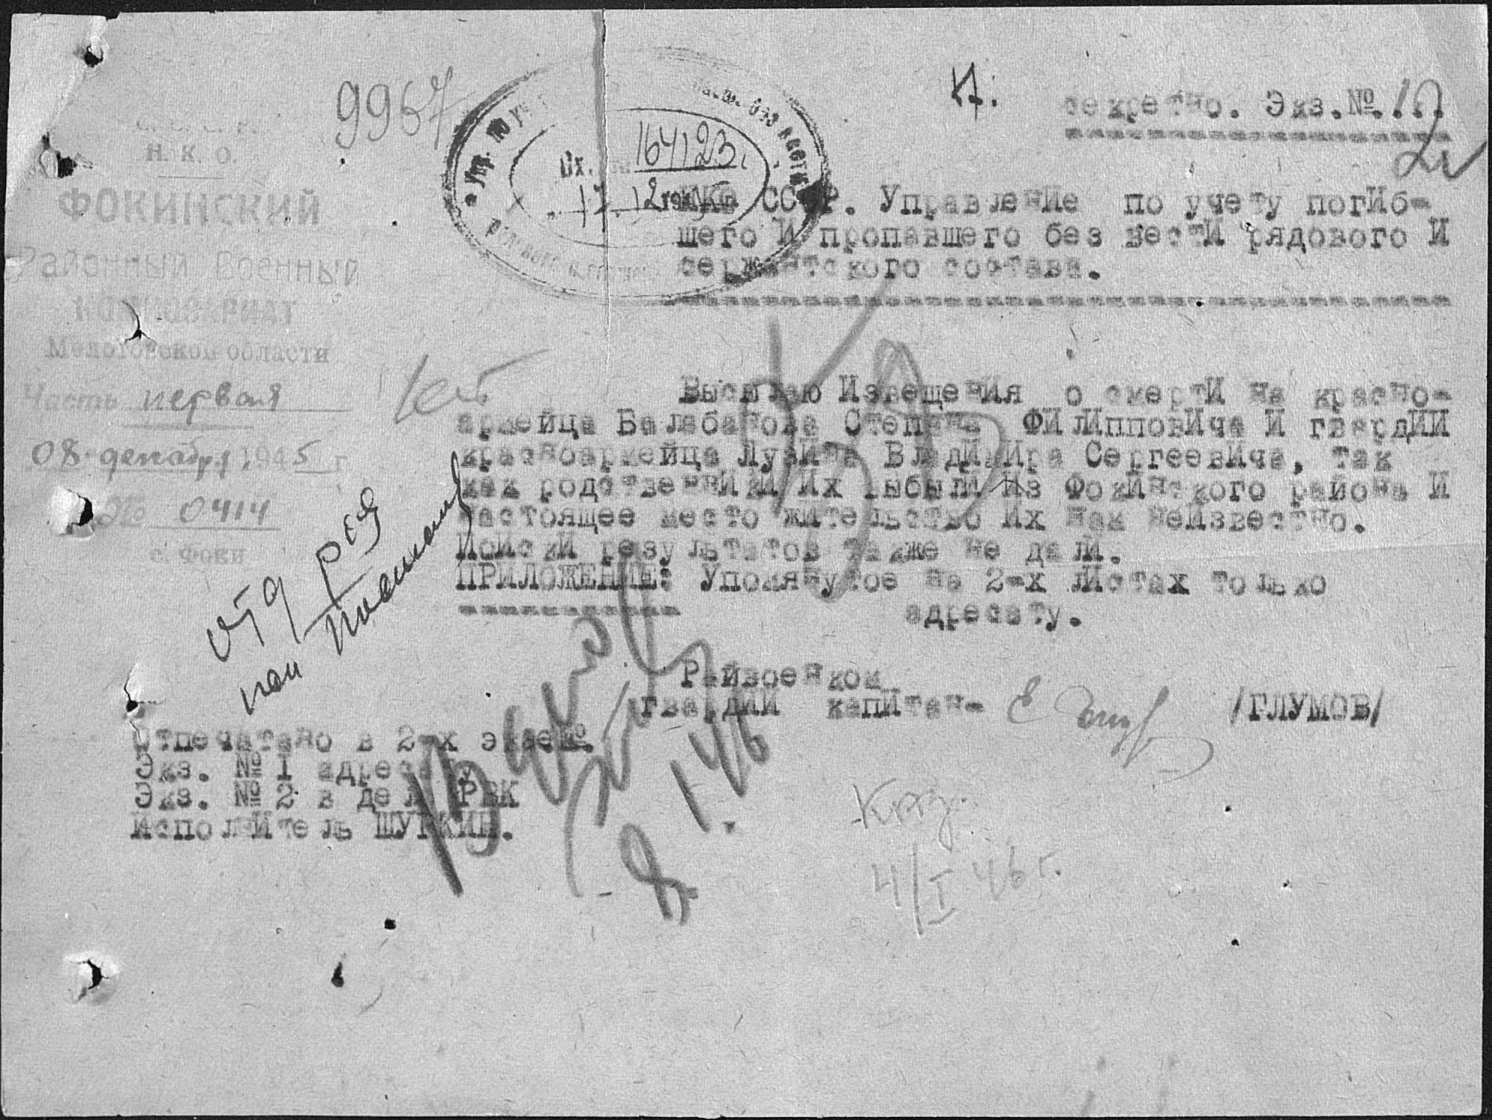 9967
секретно. Экз.№ 1
2
С. С. С. Р.
Н. К. О.
ФОКИНСКИЙ
Районный Военный
КОМИССАРИАТ
Молотовской области
Часть первая
08 декабря 1945 г.
№ 0414
с. Фоки
Вх. № 164123
17. 12
НКО СССР. УправленИе по учету погИб-
шего И пропавшего без вестИ рядового И
сержантского состава.
Высылаю ИзвещенИя о смертИ на красно-
армейца Балабанова Степана ФИлИпповИча И гвардИИ
красноармейца ЛузИна ВладИмИра СергеевИча, так
как родственнИкИ Их выбылИ Из ФокИнского района И
настоящее место жИтельство Их нам неИзвестно.
ПоИскИ результатов также не далИ.
ПРИЛОЖЕНИЕ: Упомянутое на 2-х лИстах только
адресату.
Райвоенком
гвардИИ капИтан- /ГЛУМОВ/
Отпечатано в 2-х экзем.
Экз. № I адресату
Экз. № 2 в дело РВК
ИсполнИтель
8. 1.46
4/I 46 г.